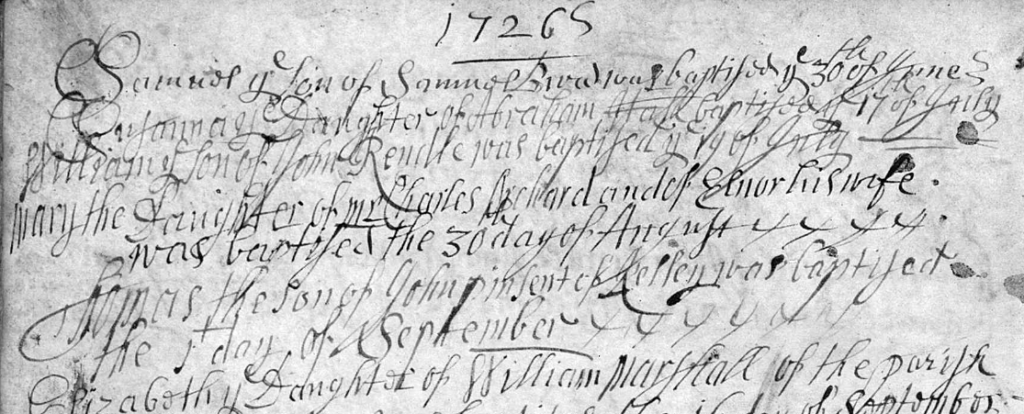 1726
Samuel ye son of Samuel was baptised ye 30th of June
Susanna ye Daughter of Abraham Hall baptised ye 17 of July
William ye son of John Rendle was baptised ye 19 of July
Mary the Daughter of Mr Charles Archard and of Elnor his wife
was baptised the 30 day of August
Thomas the son of John pinsent of Kelley was baptised
the 1 day of September
Elizabeth ye Daughter of William Marshall of the parish
of September